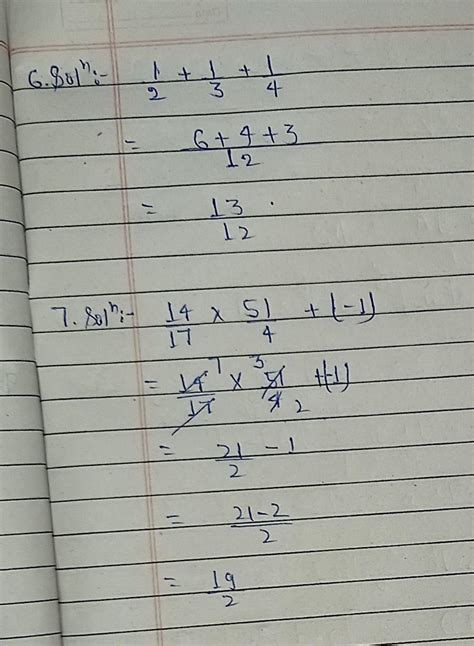 6. Solⁿ:- 1/2 + 1/3 + 1/4
= 6+4+3/12
= 13/12 .
7. Solⁿ:- 14/17 × 51/4 + (-1)
= 14 7/17 × 3 51/4 2 + (-1)
= 21/2 - 1
= 21-2/2
= 19/2